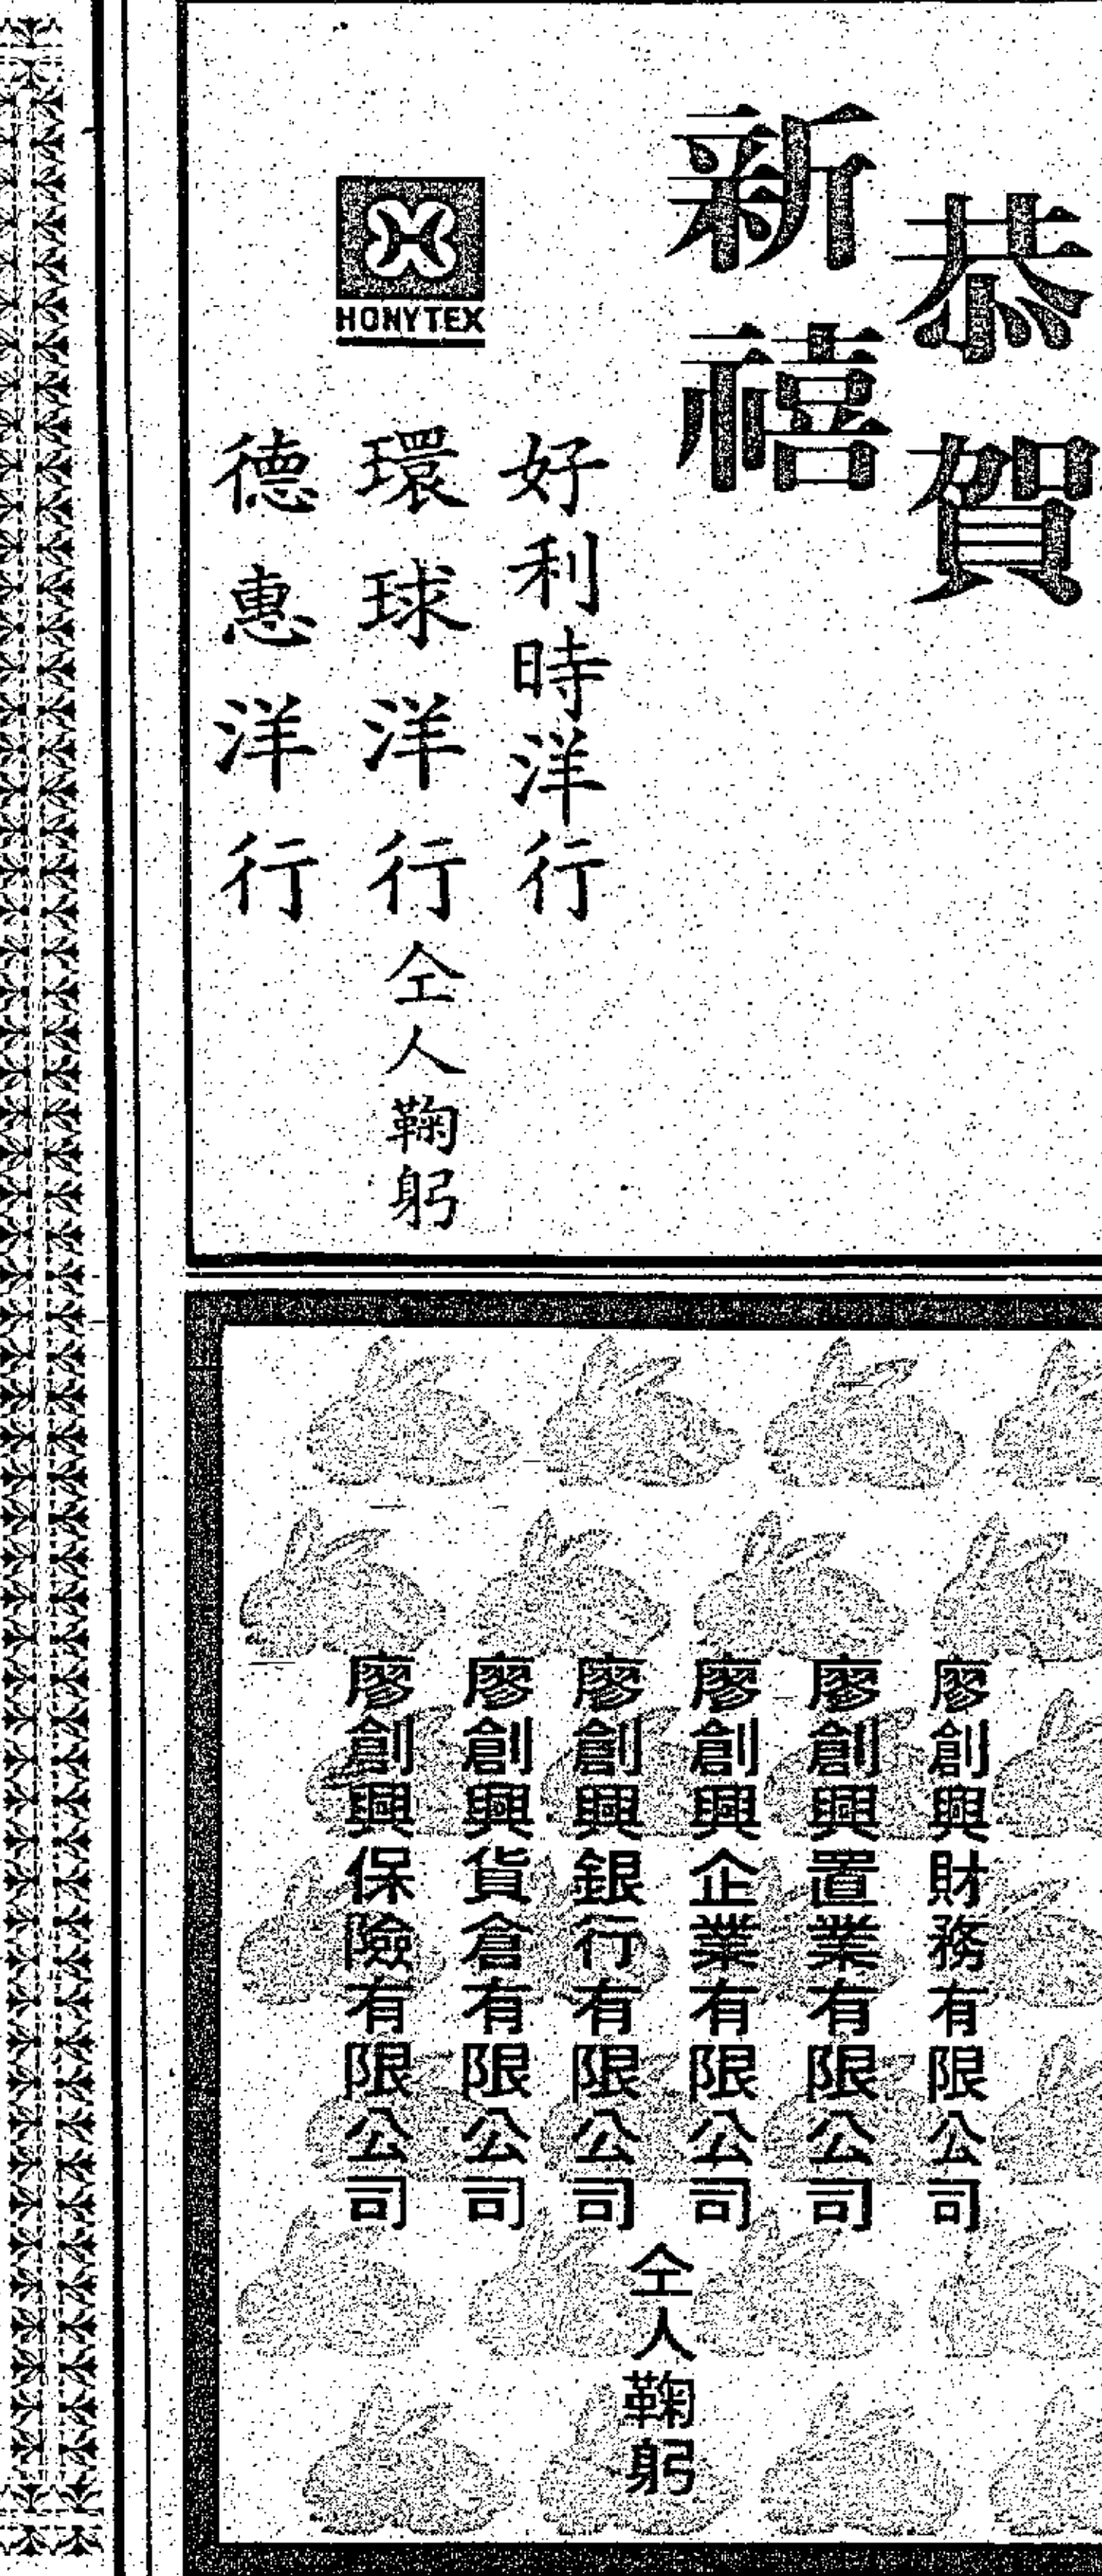 恭賀
新禧
HONYTEX
好利時洋行
環球洋行仝人鞠躬
德惠洋行
廖創興財務有限公司
廖創興置業有限公司
廖創興企業有限公司
廖創興銀行有限公司
廖創興貨倉有限公司
廖創興保險有限公司
仝人鞠躬